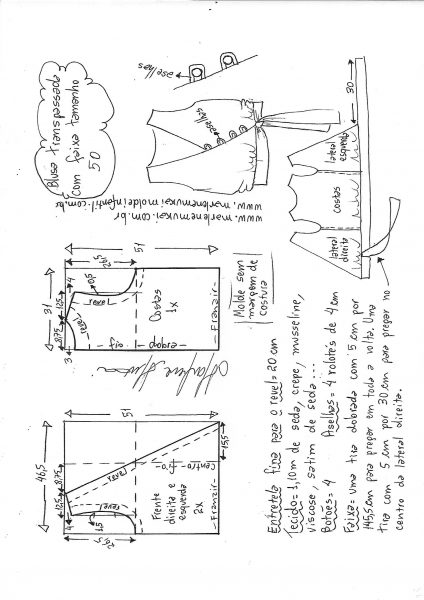 Blusa transpassada
com faixa tamanho
50
aselhas
aselhas
www.marlenemukai.com.br
www.marlenemukaimoldeinfantil.com.br
30
lateral
esquerda
costas
lateral
direita
51
26,5
31
4
12,5
8,75
3
0,5
revel
revel
Costas
1x
dobra
fio
Franzir
Molde sem
margem de
costura
Marlene Mukai
51
46,5
8,75
12,5
4
1,5
26,5
15,5
revel
revel
Centro
fio
Frente
direita e
esquerda
2x
Franzir
Entretela fina para o revel= 20 cm
Tecido= 1,10m de seda, crepe, musseline,
viscose, satim de seda...
Botões= 4 Aselhas= 4 rolotés de 4 cm
Faixa= Uma tira dobrada com 5 cm por
145,5cm para pregar em toda a volta. Uma
tira com 5 cm por 30 cm para pregar no
centro da lateral direita.